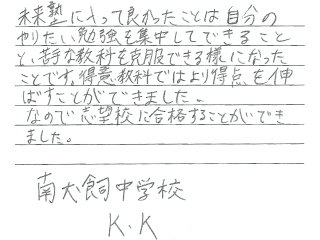 未来塾に入って良かったことは自分の
やりたい勉強を集中してできること
と、苦手な教科を克服できる様になった
ことです。得意教科ではより得点を伸
ばすことができました。
なので志望校に合格することができ
ました。
南犬飼中学校
K.K